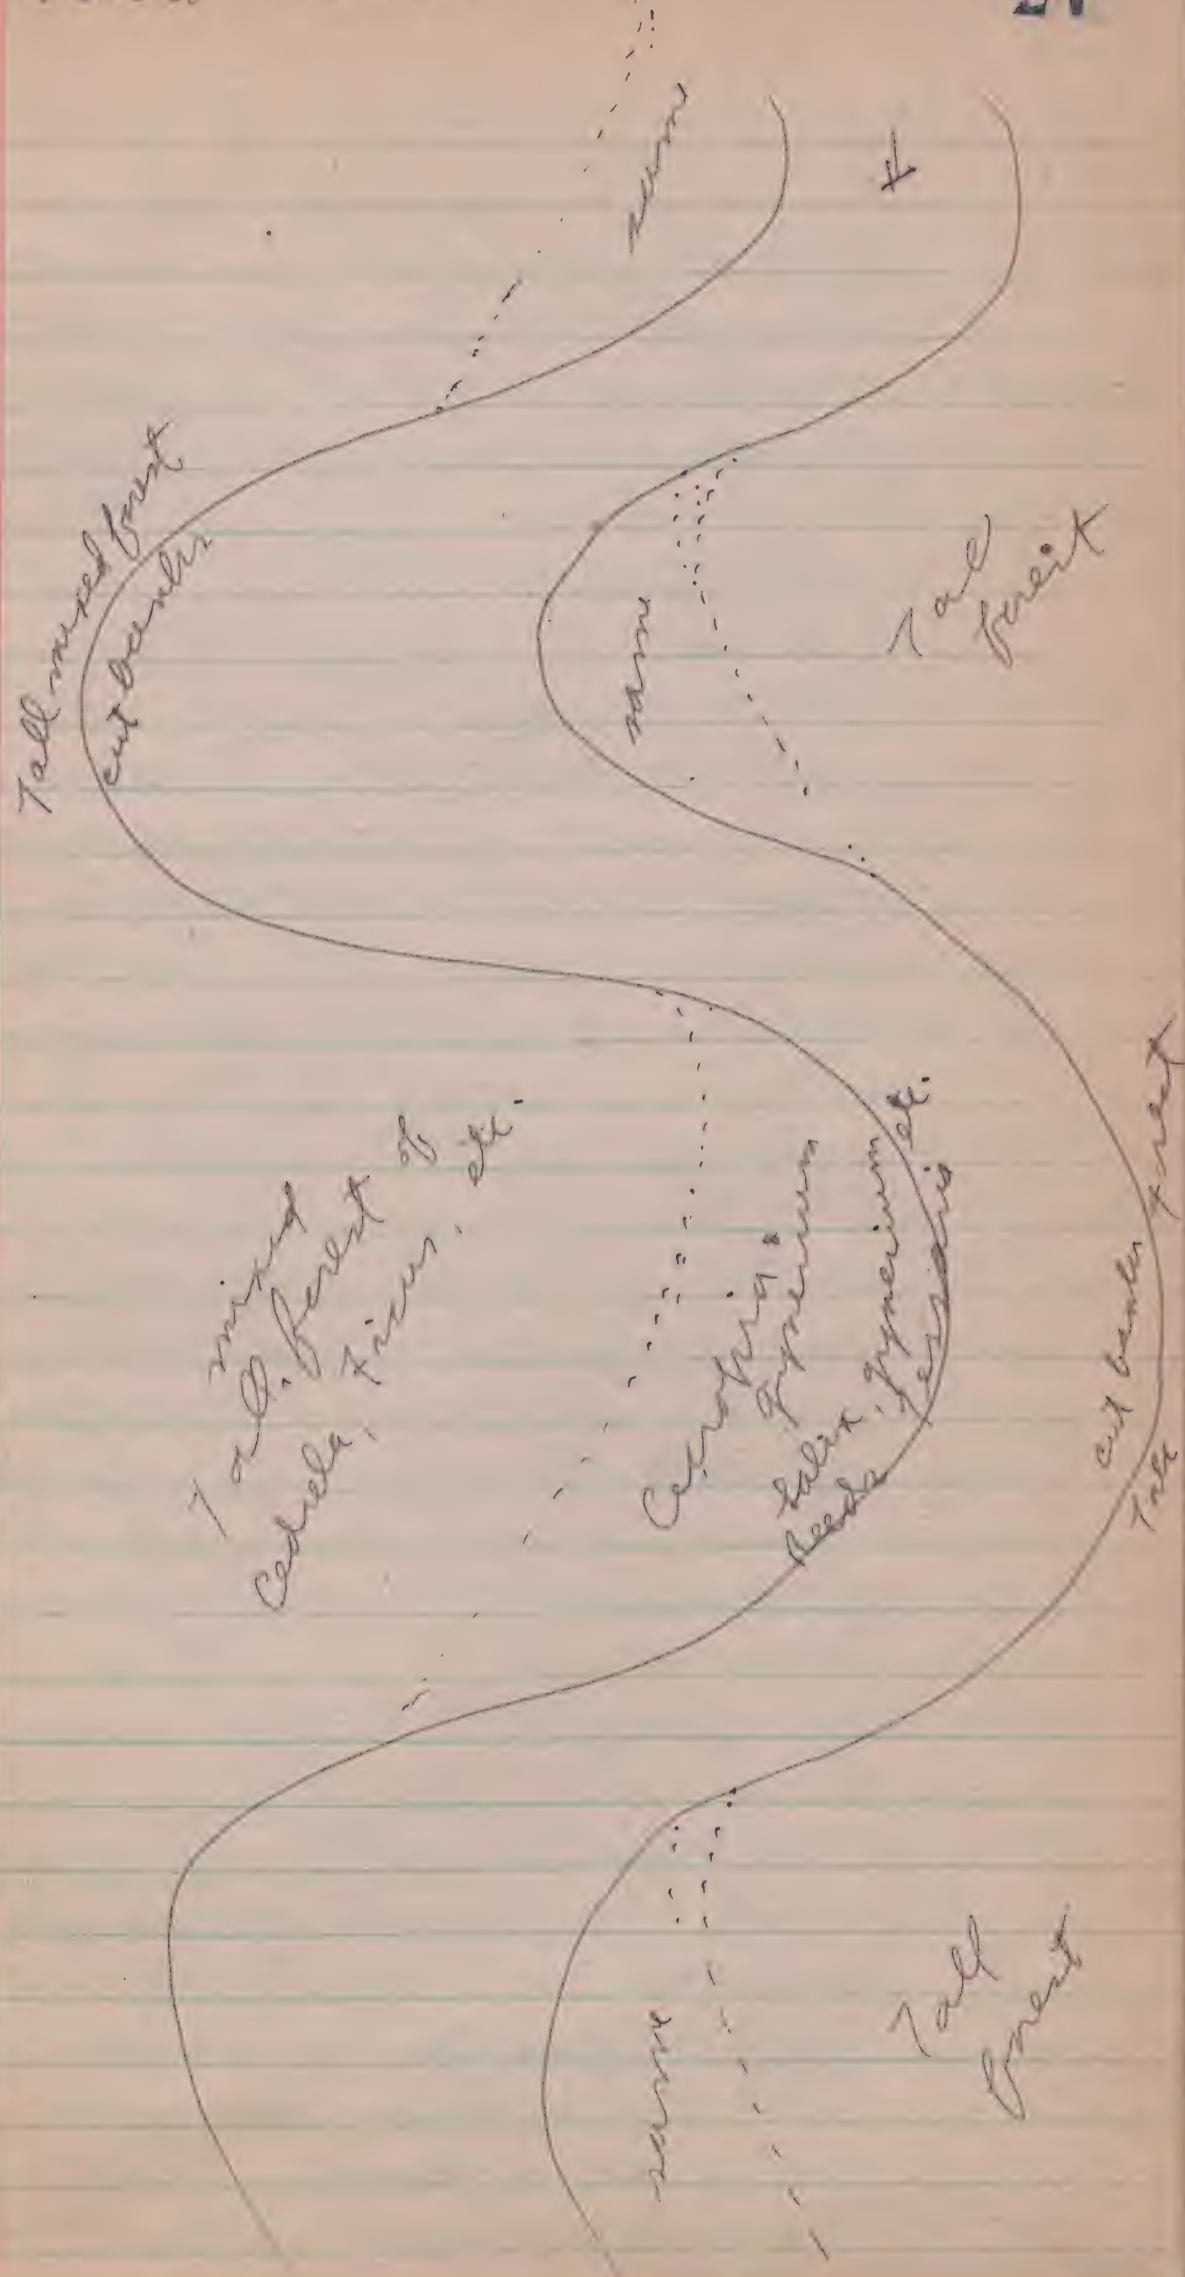 same
Tall mixed forest
cut banks
same
Tall
forest
mixed
Tall forest of
Cedrela, Ficus, etc.
Cecropia &
gynerium
Salix, gynerium etc.
Reeds Tessaria
cut banks
Tall forest
same
Tall
forest